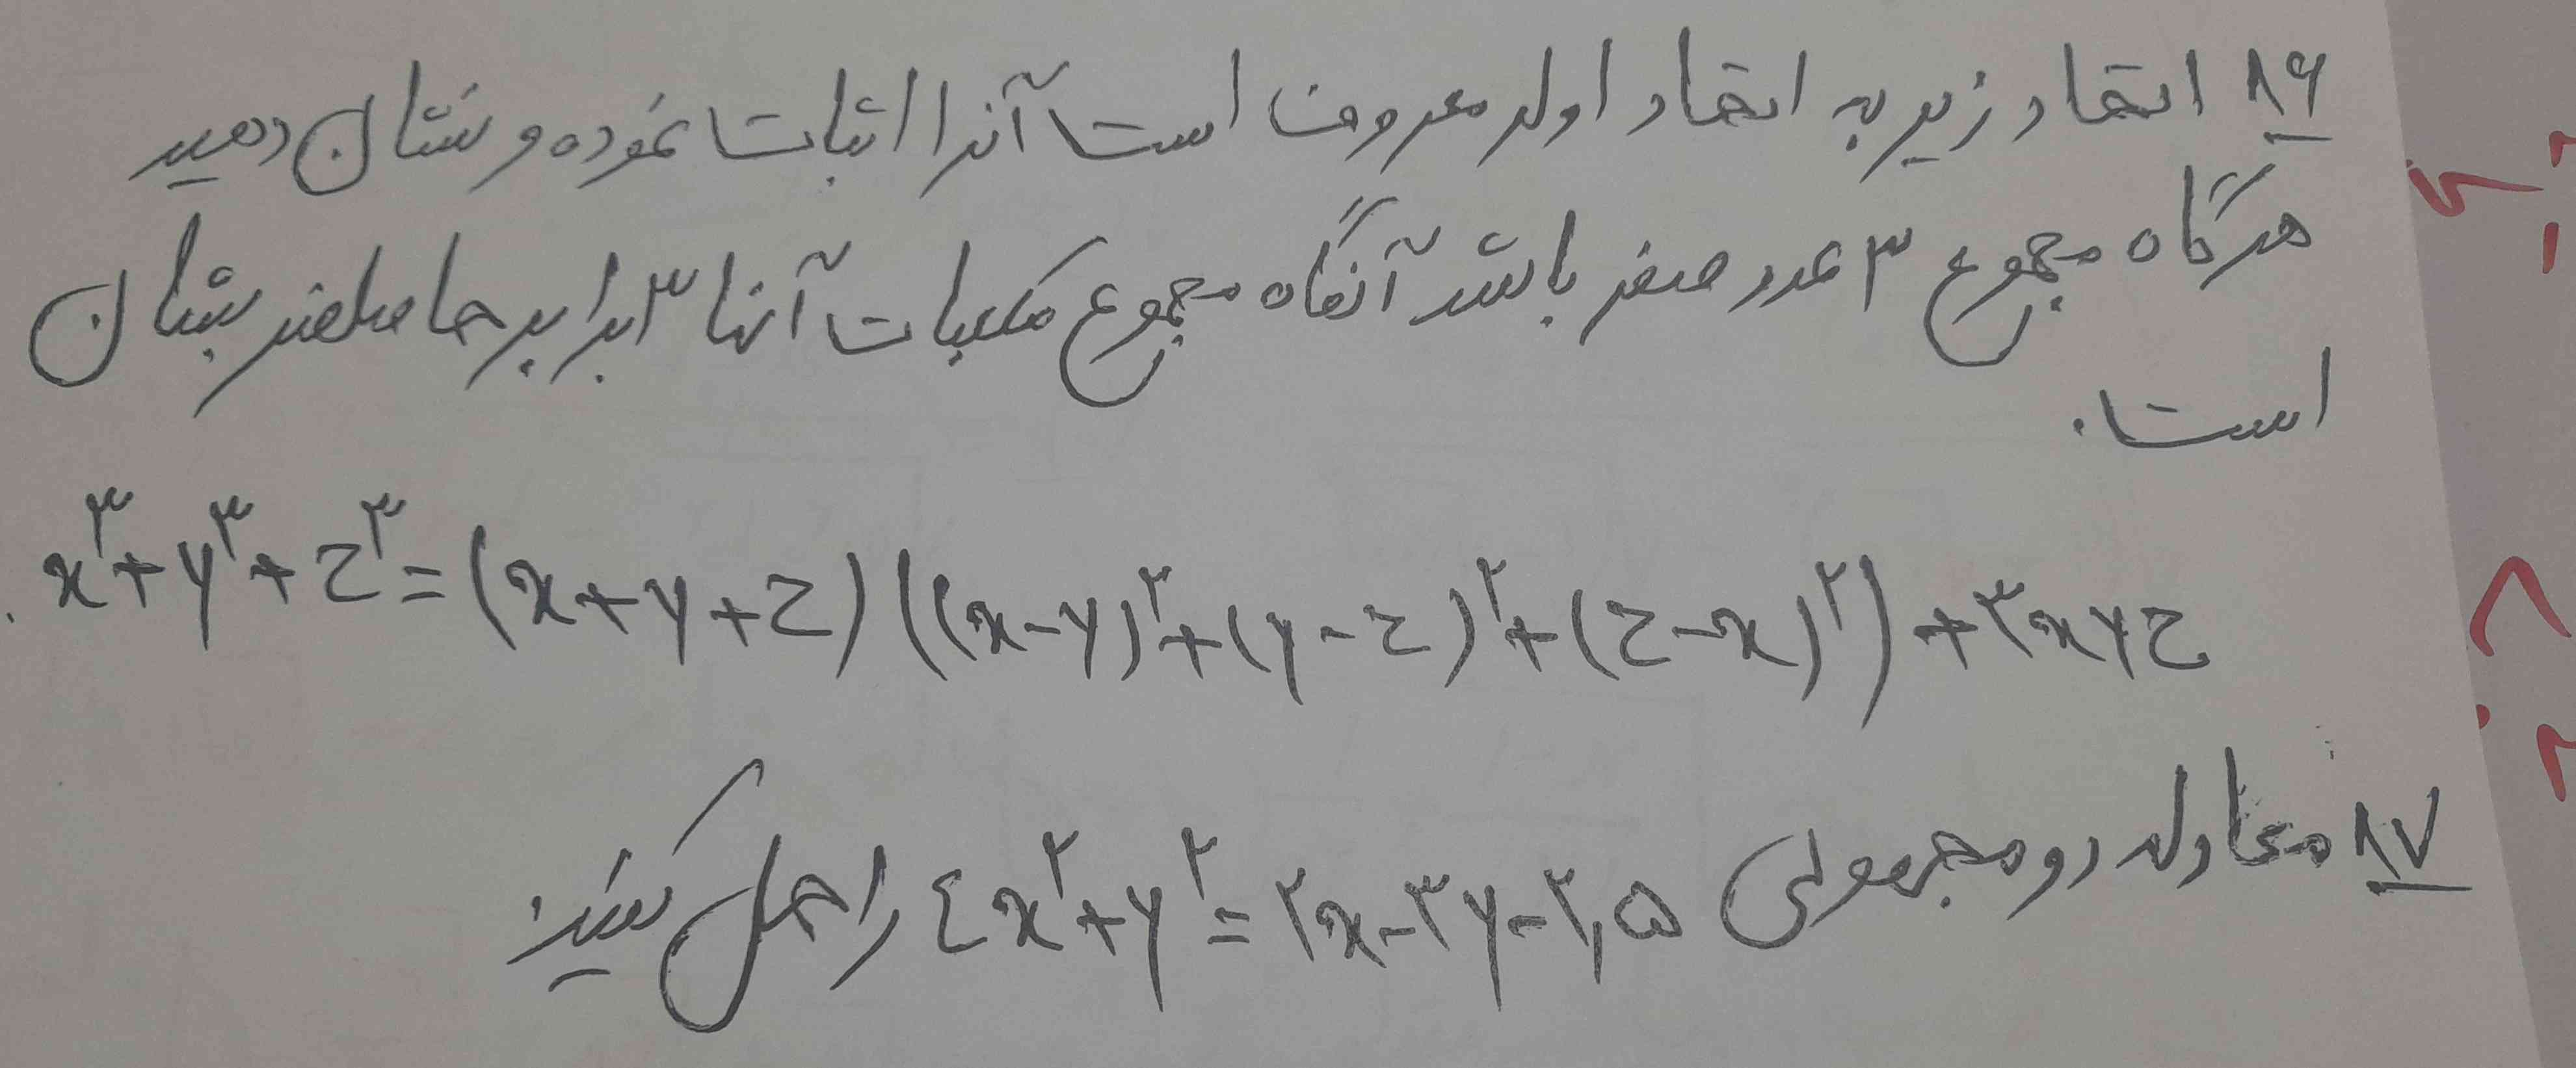 ۸۶ اتحاد زیر به اتحاد اولر معروف است آنرا اثبات نموده و نشان دهید
هرگاه مجموع ۳ عدد صفر باشد آنگاه مجموع مکعبات آنها ۳ برابر حاصلضربشان
است.
x^۳+y^۳+z^۳=(x+y+z)((x-y)^۲+(y-z)^۲+(z-x)^۲)+۳xyz
۸۷ معادله دو مجهولی ۴x^۲+y^۲=۲x-۳y-۲٫۵ را حل کنید